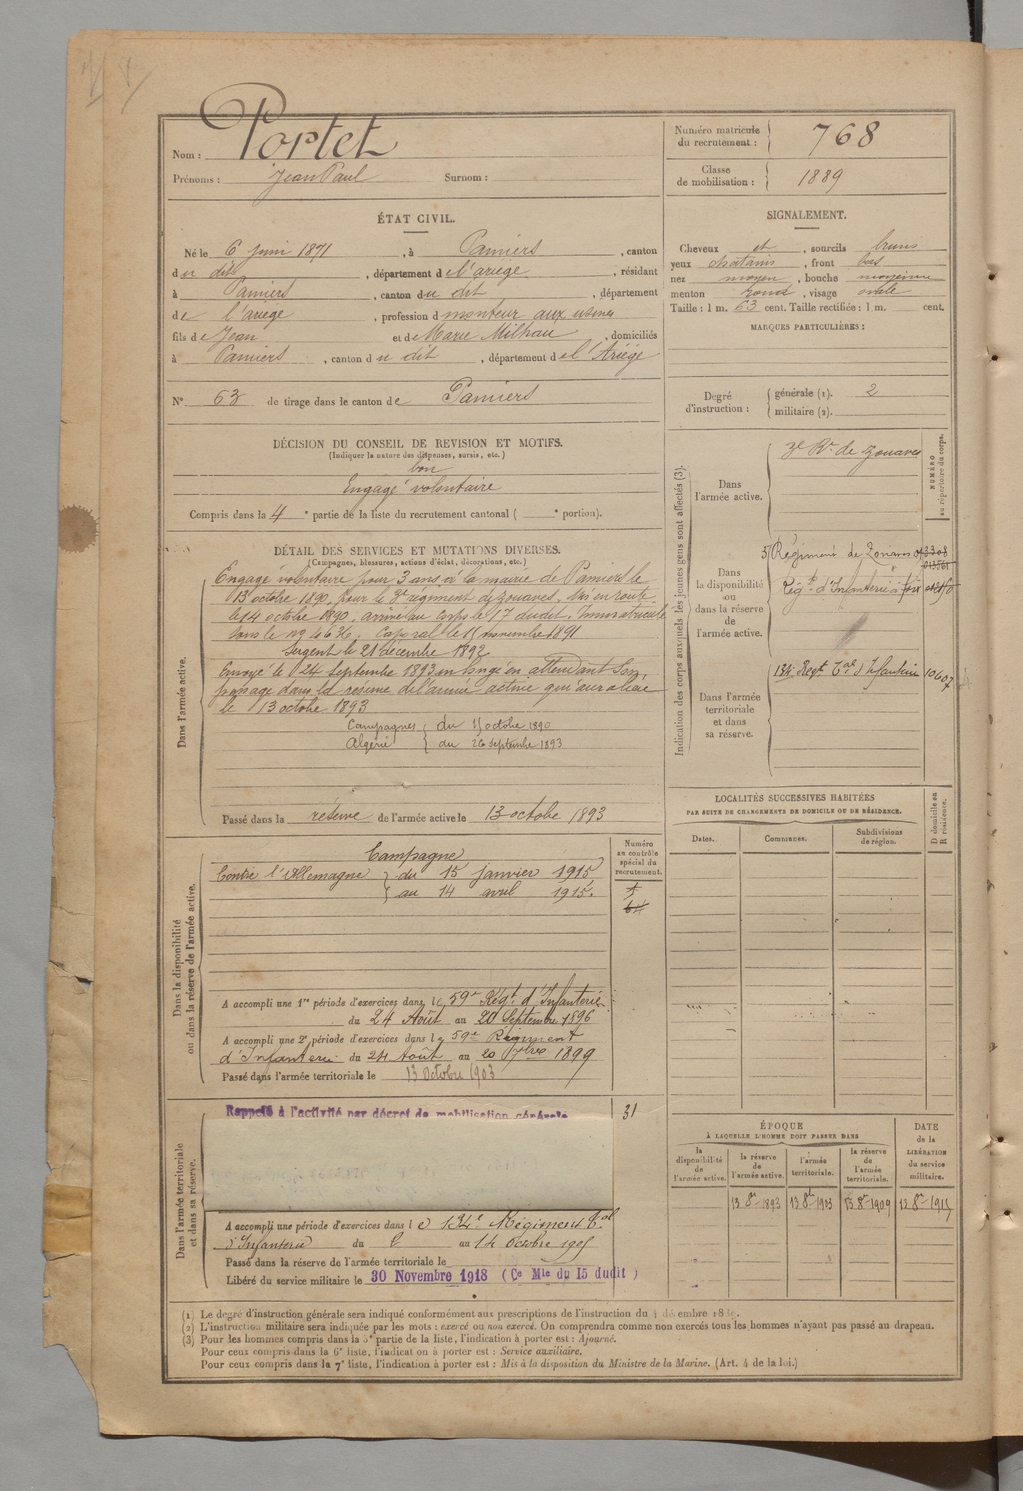 Nom : Portet
Prénoms : Jean Paul Surnom :
Numéro matricule du recrutement : 768
Classe de mobilisation : 1889
ÉTAT CIVIL.
Né le 6 juin 1871, à Pamiers, canton
du dit, département de l'ariège, résidant
à Pamiers, canton du dit, département
de l'ariège, profession d monteur aux usines
fils de Jean et de Marie Milhau, domiciliés
à Pamiers, canton du dit, département de l'Ariège
N° 63 de tirage dans le canton de Pamiers
SIGNALEMENT.
Cheveux et, sourcils bruns
yeux chatains, front bas
nez moyen, bouche moyenne
menton rond, visage ovale
Taille : 1 m. 63 cent. Taille rectifiée : 1 m. cent.
MARQUES PARTICULIÈRES :
Degré d'instruction : générale (1). 2
militaire (2).
DÉCISION DU CONSEIL DE REVISION ET MOTIFS.
(Indiquer la nature des dispenses, sursis, etc.)
bon
Engagé volontaire
Compris dans la 4e partie de la liste du recrutement cantonal ( e portion).
DÉTAIL DES SERVICES ET MUTATIONS DIVERSES.
(Campagnes, blessures, actions d'éclat, décorations, etc.)
Dans l'armée active.
Engagé volontaire pour 3 ans à la mairie de Pamiers le
13 octobre 1890, pour le 3e régiment de zouaves. Mis en route
le 14 octobre 1890, arrivé au corps le 17 dudit. Immatriculé
sous le no 4636. Caporal le 15 novembre 1891
Sergent le 21 décembre 1892
Envoyé le 24 septembre 1893 en congé en attendant son
passage dans la réserve de l'armée active qui aura lieu
le 13 octobre 1893
Campagnes du 15 octobre 1890
Algérie du 26 septembre 1893
Passé dans la réserve de l'armée active le 13 octobre 1893
Indication des corps auxquels les jeunes gens sont affectés (3).
NUMÉRO au répertoire du corps.
Dans l'armée active.
3e Rt de zouaves
Dans la disponibilité ou dans la réserve de l'armée active.
Régiment de Zouaves
Régt d'Infanterie à Foix
Dans l'armée territoriale et dans sa réserve.
134e Regt Tal d'Infanterie 10607
LOCALITÉS SUCCESSIVES HABITÉES
PAR SUITE DE CHANGEMENTS DE DOMICILE OU DE RÉSIDENCE.
Dates. Communes. Subdivisions de région. D domicile ou R résidence.
Dans la disponibilité ou dans la réserve de l'armée active.
Numéro au contrôle spécial du recrutement.
Campagne
Contre l'Allemagne du 15 janvier 1915
au 14 avril 1915.
A accompli une 1re période d'exercices dans le 59e Régt d'Infanterie
du 24 Août au 20 Septembre 1896
A accompli une 2e période d'exercices dans le 59e Régiment
d'Infanterie du 24 Août au 20 7bre 1899
Passé dans l'armée territoriale le 13 Octobre 1903
Dans l'armée territoriale et dans sa réserve.
Rappelé à l'activité par décret de mobilisation générale
31
A accompli une période d'exercices dans le 134e Régiment Tal
d'Infanterie du 2 au 14 Octobre 1905
Passé dans la réserve de l'armée territoriale le
Libéré du service militaire le 30 Novembre 1918 (Ce Mle du 15 dudit)
ÉPOQUE
À LAQUELLE L'HOMME DOIT PASSER DANS
DATE de la LIBÉRATION du service militaire.
la disponibilité de l'armée active. la réserve de l'armée active. l'armée territoriale. la réserve de l'armée territoriale.
13 8bre 1893 13 8bre 1903 13 8bre 1909 13 8bre 1915
(1) Le degré d'instruction générale sera indiqué conformément aux prescriptions de l'instruction du 4 décembre 1889.
(2) L'instruction militaire sera indiquée par les mots : exercé ou non exercé. On comprendra comme non exercés tous les hommes n'ayant pas passé au drapeau.
(3) Pour les hommes compris dans la 5e partie de la liste, l'indication à porter est : Ajourné.
Pour ceux compris dans la 6e liste, l'indication à porter est : Service auxiliaire.
Pour ceux compris dans la 7e liste, l'indication à porter est : Mis à la disposition du Ministre de la Marine. (Art. 4 de la loi.)